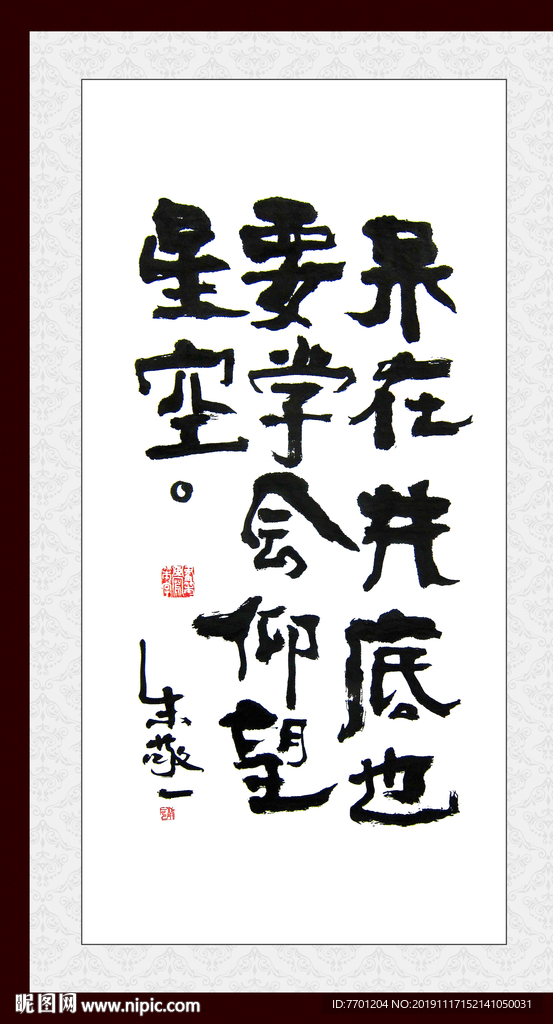 呆在井底也
要学会仰望
星空。
朱敬一
昵图网 www.nipic.com
ID:7701204 NO:20191117152141050031